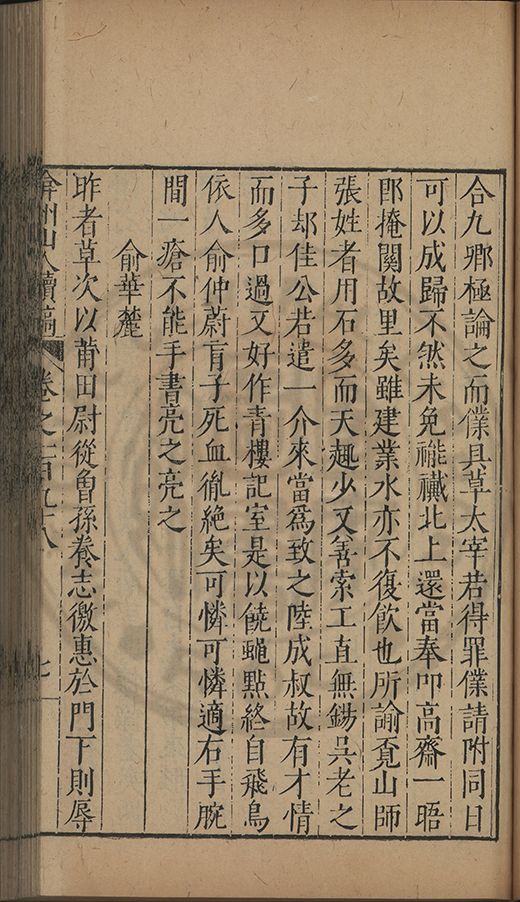 合九卿極論之而僕具草太宰若得罪僕請附同日
可以成歸不然未免襹襶北上還當奉叩高齋一晤
即掩關故里矣雖建業水亦不復飲也所諭覔山師
張姓者用石多而天趣少又善索工直無錫吳老之
子却佳公若遣一介來當爲致之陸成叔故有才情
而多口過又好作青樓記室是以饒蠅點終自飛鳥
依人俞仲蔚肓子死血胤絶矣可憐可憐適右手腕
間一瘡不能手書亮之亮之
俞華麓
昨者草次以莆田尉從曾孫養志徼惠於門下則辱
弇州山人續稿 卷之一百九十八 七